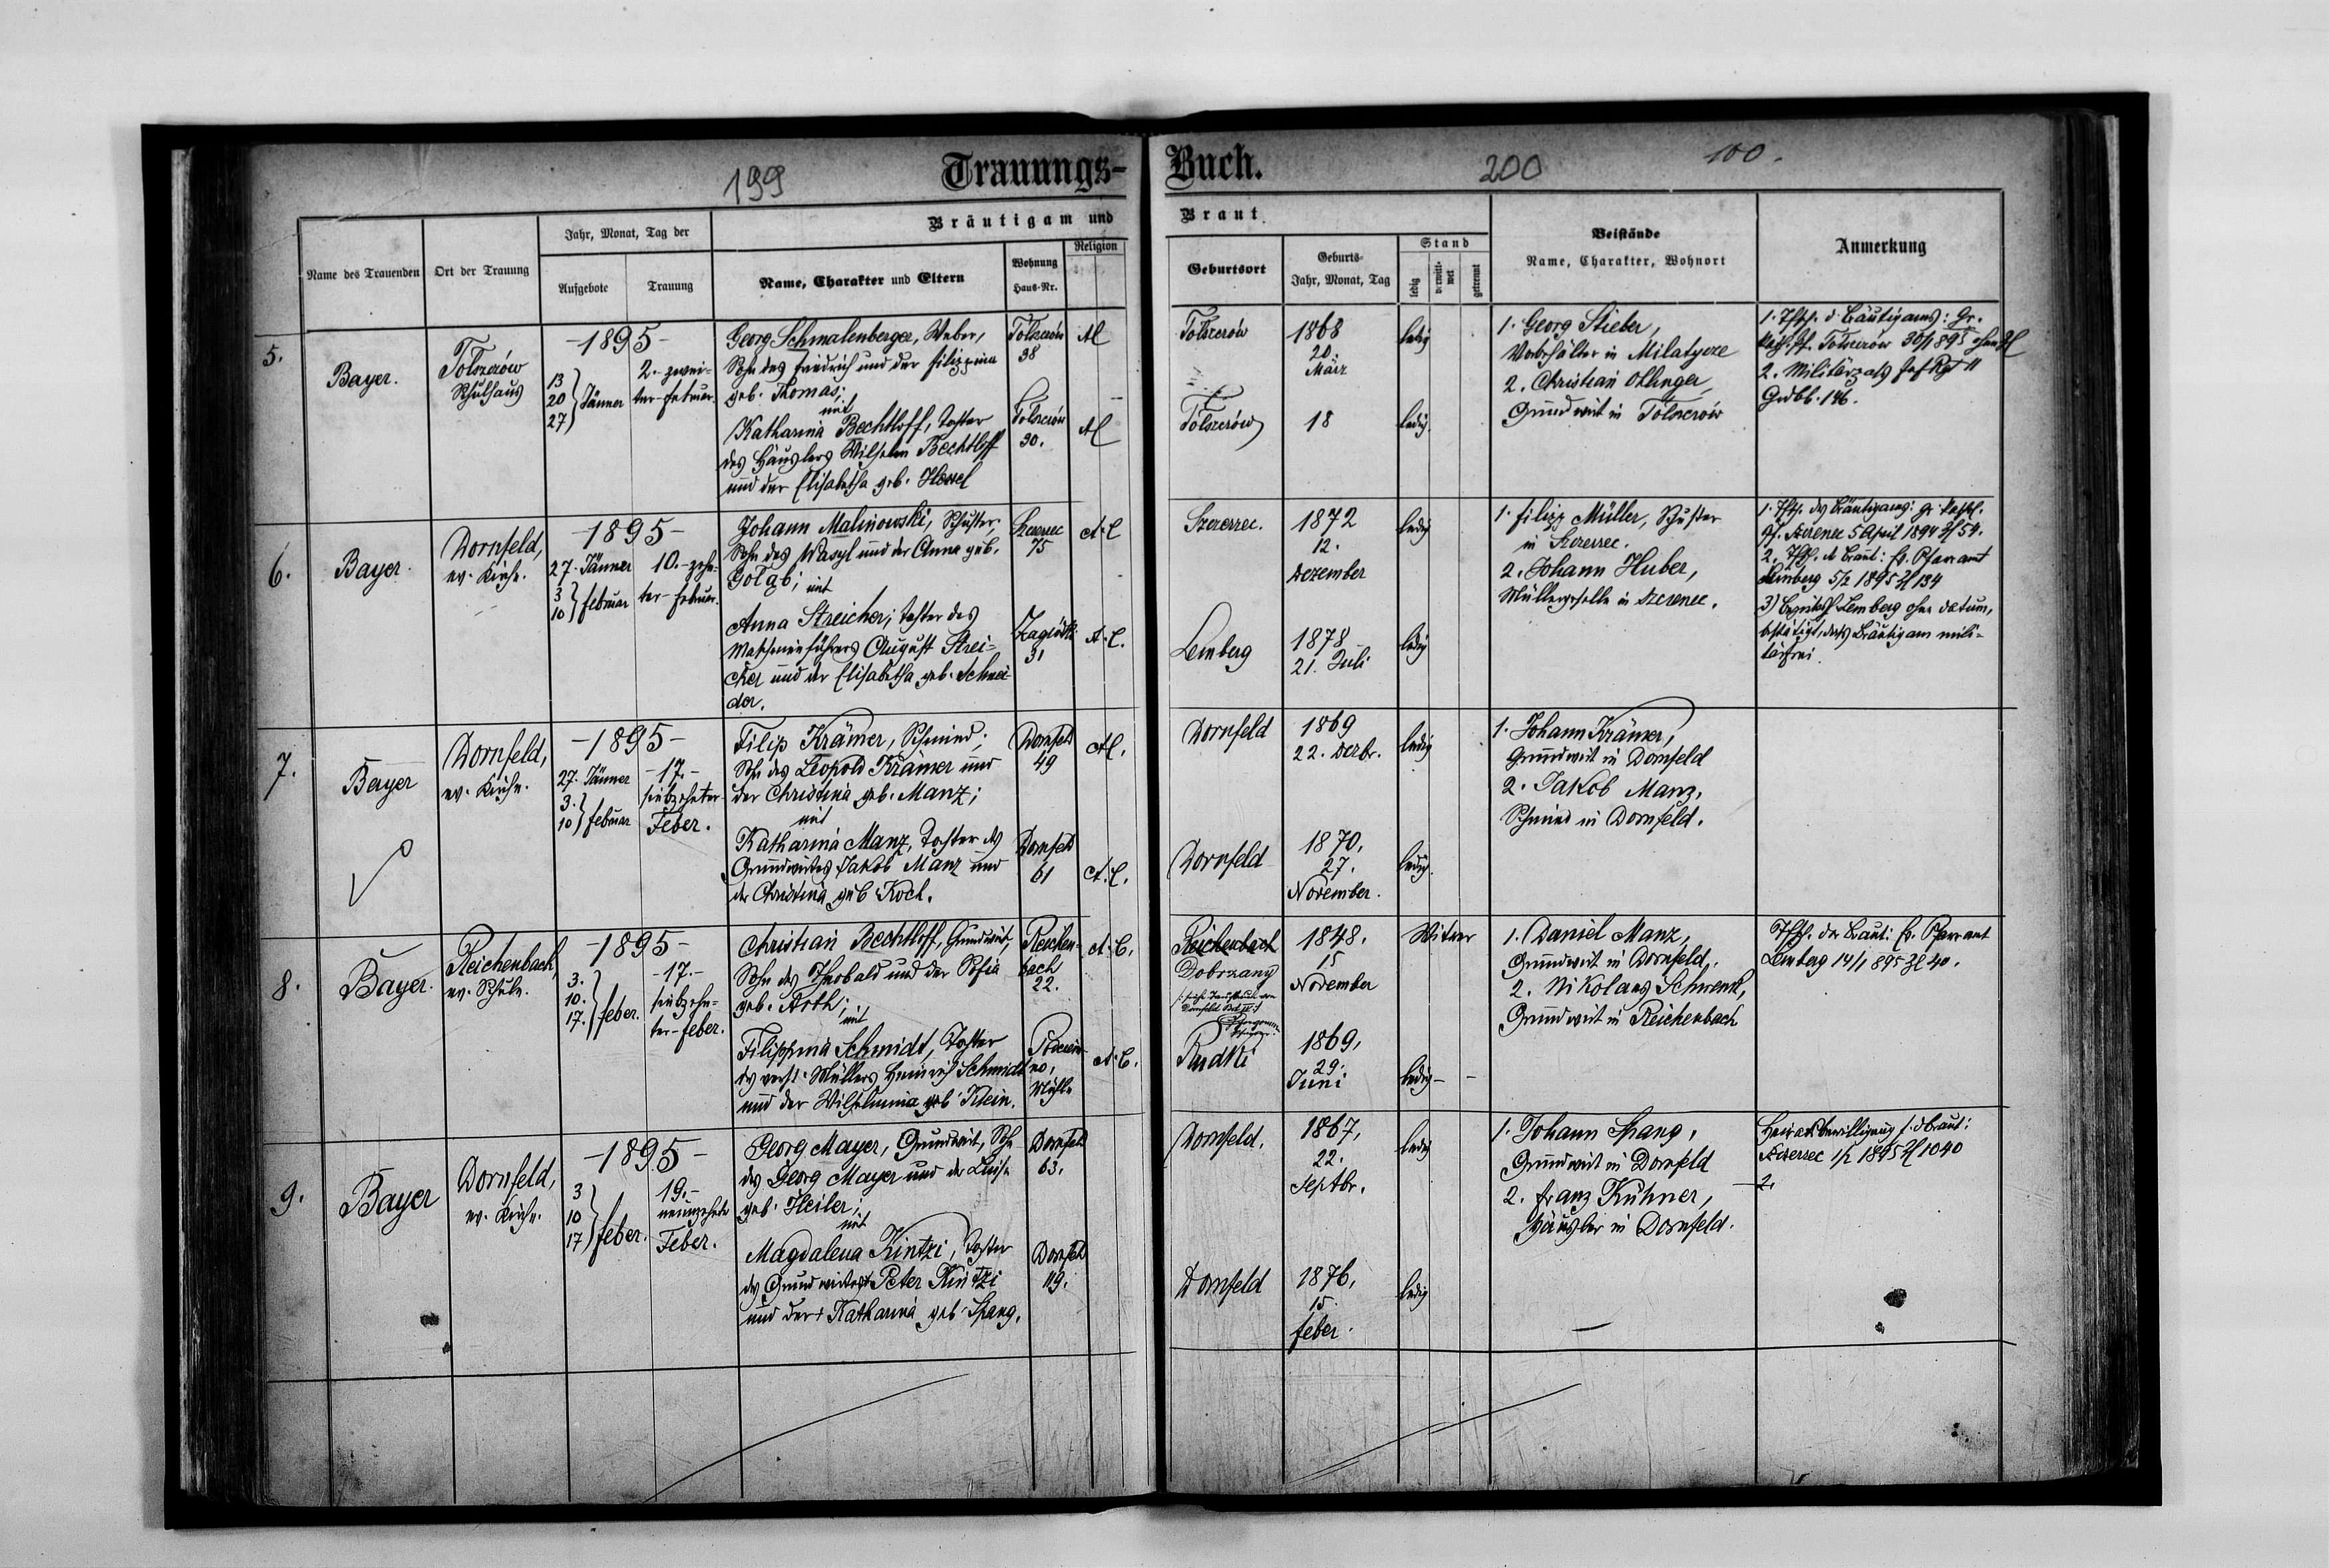 199
Trauungs-
Buch.
200
100.
Name des Trauenden
Ort der Trauung
Jahr, Monat, Tag der
Aufgebote
Trauung
Bräutigam und
Name, Charakter und Eltern
Wohnung
Haus-Nr.
Religion
Braut
Geburtsort
Geburts-
Jahr, Monat, Tag
Stand
ledig
verwitt-
wet
getrennt
Beistände
Name, Charakter, Wohnort
Anmerkung
5.
Bayer.
Tolszczów
Schulhaus
-1895-
13
20
27
Jänner
2. zwei-
ter Februar
Georg Schmalenberger, Weber,
Sohn des Friedrich und der Filippina
geb. Thomas;
mit
Katharina Bechtloff, Tochter
des Häuslers Wilhelm Bechtloff
und der Elisabetha geb.
Tolszczów
38
Tolszczów
30.
Tolszczów
1868
20.
März
ledig
Tolszczów
18
ledig
1. Georg Stieber,
in
2. Christian Ollinger,
Grundwirt in Tolszczów
1. d. Bräutigams: Gr.
Tolszczów 30/1 895
2.
6.
Bayer.
Dornfeld,
ev. Kirche.
-1895-
27. Jänner
3
10
Februar
10. zehn-
ter Februar.
Johann Malinowski, Schuster
Sohn des Wasyl und der Anna geb.
Gołąb; mit
Anna Streicher, Tochter des
Maschinenführers August Strei-
cher und der Elisabetha geb. Schnei-
der.
Szczerzec
75
A. C
Zagródki
31
A. C.
Szczerzec.
1872
12.
Dezember
ledig
Lemberg
1878
21. Juli
ledig
1. Filipp Müller, Schuster
in Szczerzec.
2. Johann Huber,
Müllergeselle in Szczerzec.
1. des Bräutigams: gr. kathol.
Szczerzec 5 April 1894 Zl 54.
2. d. Braut: Ev. Pfarramt
Lemberg 5/2 1895 Zl 134
3) Lemberg ohne Datum,
bestätigt, dass Bräutigam mili-
tärfrei.
7.
Bayer
Dornfeld,
ev. Kirche.
-1895-
27. Jänner
3.
10
Februar
-17.-
siebzehnter
Feber.
Filip Krämer, Schmied;
Sohn des Leopold Krämer und
der Christina geb. Manz;
mit
Katharina Manz, Tochter des
Grundwirtes Jakob Manz und
der Christina geb. Koch.
Dornfeld
49
Dornfeld
61
A. C.
Dornfeld
1869
22. Dezbr.
ledig
Dornfeld
1870.
27.
November.
ledig.
1. Johann Krämer,
Grundwirt in Dornfeld
2. Jakob Manz,
Schmied in Dornfeld.
8.
Bayer.
Reichenbach
ev. Schule.
-1895-
3.
10.
17.
Feber.
-17.-
siebzehn-
ter Feber.
Christian Bechtloff, Grundwirt,
Sohn des Theobald und der Sofia
geb. Roth;
mit
Filippina Schmidt, Tochter
des verst. Müllers Heinrich Schmidt
und der Wilhelmina geb. Klein.
Reichen-
bach
22.
A. C.
Mühle
A. C.
Reichenbach
Dobrzany
1848.
15
November
Witwer
Rudki
1869,
29.
Juni
ledig
1. Daniel Manz,
Grundwirt in Dornfeld,
2. Nikolaus Schwenk,
Grundwirt in Reichenbach
der Braut: Ev. Pfarramt
Lemberg 14/1 895 Zl 40.
9.
Bayer
Dornfeld,
ev. Kirche.
-1895-
3
10
17
Feber.
19.-
neunzehnte
Feber.
Georg Mayer, Grundwirt, Sohn
des Georg Mayer und der Luise
geb. Heiler;
mit
Magdalena Kintzi, Tochter
des Grundwirtes Peter Kintzi
und der + Katharina geb. Spang.
Dornfeld
63.
Dornfeld
119.
Dornfeld.
1867,
22.
Septbr.
ledig
Dornfeld
1876,
15.
Feber.
ledig
1. Johann Spang,
Grundwirt in Dornfeld
2. Franz Kühner,
Häusler in Dornfeld.
Heiratsbewilligung f. d. Braut:
Szczerzec 1/2 1895 Zl 1040